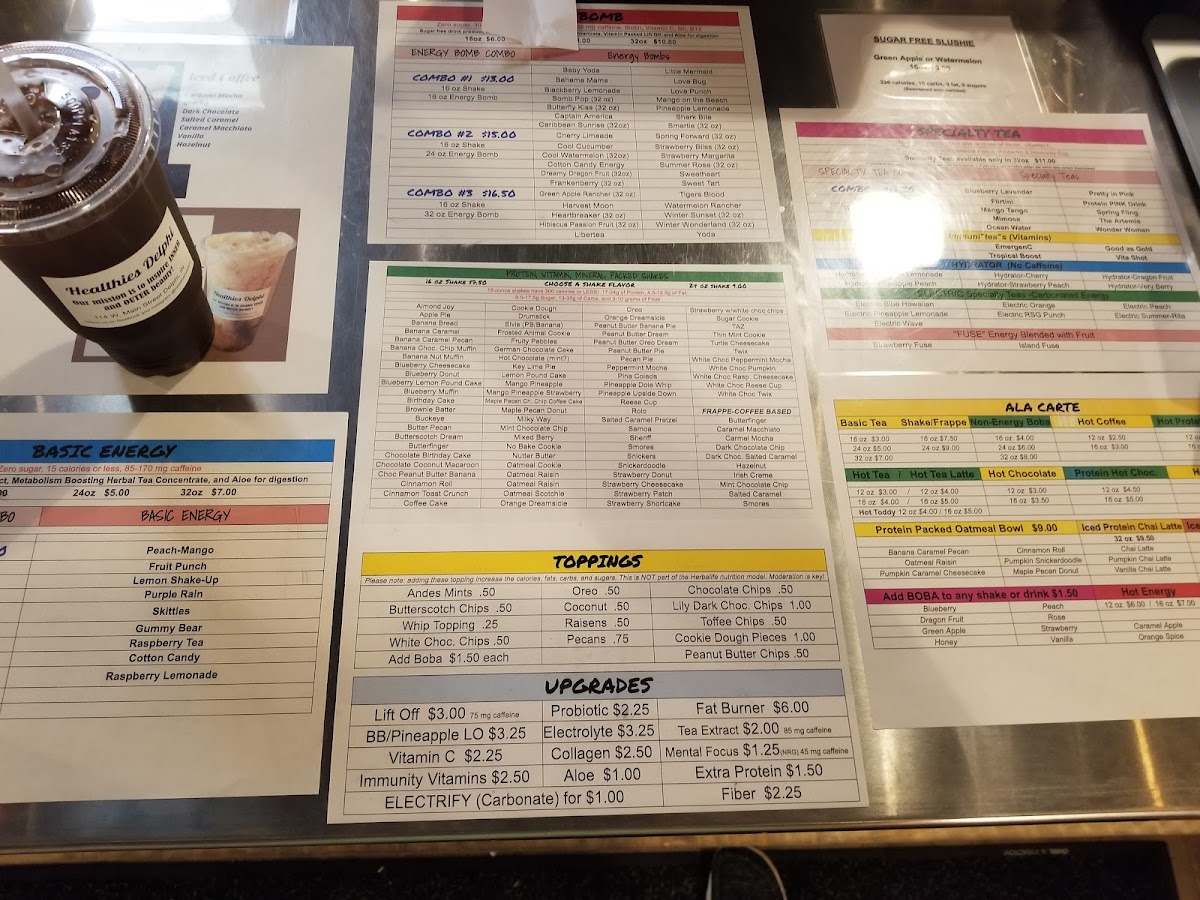 Iced Coffee
Caramel Mocha
Dark Chocolate
Salted Caramel
Caramel Macchiato
Vanilla
Hazelnut
Healthies Delphi
Our mission is to inspire INNER
and OUTER health!
114 W. Main Street Delphi, IN
Healthies Delphi
BASIC ENERGY
Zero sugar, 15 calories or less, 85-170 mg caffeine
Metabolism Boosting Herbal Tea Concentrate, and Aloe for digestion
24oz $5.00 32oz $7.00
BASIC ENERGY
Peach-Mango
Fruit Punch
Lemon Shake-Up
Purple Rain
Skittles
Gummy Bear
Raspberry Tea
Cotton Candy
Raspberry Lemonade
BOMB
16oz $6.00 32oz $10.00
ENERGY BOMB COMBO Energy Bombs
COMBO #1 $13.00
16 oz Shake
16 oz Energy Bomb
COMBO #2 $15.00
16 oz Shake
24 oz Energy Bomb
COMBO #3 $16.50
16 oz Shake
32 oz Energy Bomb
Baby Yoda Little Mermaid
Bahama Mama Love Bug
Blackberry Lemonade Love Punch
Bomb Pop (32 oz) Mango on the Beach
Butterfly Kiss (32 oz) Pineapple Lemonade
Captain America Shark Bite
Caribbean Sunrise (32oz) Smartie (32 oz)
Cherry Limeade Spring Forward (32 oz)
Cool Cucumber Strawberry Bliss (32 oz)
Cool Watermelon (32oz) Strawberry Margarita
Cotton Candy Energy Summer Rose (32 oz)
Dreamy Dragon Fruit (32oz) Sweetheart
Frankenberry (32 oz) Sweet Tart
Green Apple Rancher (32 oz) Tigers Blood
Harvest Moon Watermelon Rancher
Heartbreaker (32 oz) Winter Sunset (32 oz)
Hibiscus Passion Fruit (32 oz) Winter Wonderland (32 oz)
Libertea Yoda
PROTEIN, VITAMIN, MINERAL PACKED SHAKES
16 OZ SHAKE $7.50 CHOOSE A SHAKE FLAVOR 24 OZ SHAKE 9.00
Almond Joy
Apple Pie
Banana Bread
Banana Caramel
Banana Caramel Pecan
Banana Choc. Chip Muffin
Banana Nut Muffin
Blueberry Cheesecake
Blueberry Donut
Blueberry Lemon Pound Cake
Blueberry Muffin
Birthday Cake
Brownie Batter
Buckeye
Butter Pecan
Butterscotch Dream
Butterfinger
Chocolate Birthday Cake
Chocolate Coconut Macaroon
Choc Peanut Butter Banana
Cinnamon Roll
Cinnamon Toast Crunch
Coffee Cake
Cookie Dough
Drumstick
Elvis (PB/Banana)
Frosted Animal Cookie
Fruity Pebbles
German Chocolate Cake
Hot Chocolate (mint?)
Key Lime Pie
Lemon Pound Cake
Mango Pineapple
Mango Pineapple Strawberry
Maple Pecan Ch. Chip Coffee Cake
Maple Pecan Donut
Milky Way
Mint Chocolate Chip
Mixed Berry
No Bake Cookie
Nutter Butter
Oatmeal Cookie
Oatmeal Raisin
Oatmeal Raisin
Oatmeal Scotchie
Orange Dreamsicle
Oreo
Orange Dreamsicle
Peanut Butter Banana Pie
Peanut Butter Dream
Peanut Butter Oreo Dream
Peanut Butter Pie
Pecan Pie
Peppermint Mocha
Pina Colada
Pineapple Dole Whip
Pineapple Upside Down
Reese Cup
Rolo
Salted Caramel Pretzel
Samoa
Sheriff
Smores
Snickers
Snickerdoodle
Strawberry Donut
Strawberry Cheesecake
Strawberry Patch
Strawberry Shortcake
Strawberry w/white choc chips
Sugar Cookie
TAZ
Thin Mint Cookie
Turtle Cheesecake
Twix
White Choc Peppermint Mocha
White Choc Pumpkin
White Choc Rasp. Cheesecake
White Choc Reese Cup
White Choc Twix
FRAPPE-COFFEE BASED
Butterfinger
Caramel Macchiato
Carmel Mocha
Dark Chocolate Chip
Dark Choc. Salted Caramel
Hazelnut
Irish Creme
Mint Chocolate Chip
Salted Caramel
Smores
TOPPINGS
Please note: adding these topping increase the calories, fats, carbs, and sugars. This is NOT part of the Herbalife nutrition model. Moderation is key!
Andes Mints .50 Oreo .50 Chocolate Chips .50
Butterscotch Chips .50 Coconut .50 Lily Dark Choc. Chips 1.00
Whip Topping .25 Raisens .50 Toffee Chips .50
White Choc. Chips .50 Pecans .75 Cookie Dough Pieces 1.00
Add Boba $1.50 each Peanut Butter Chips .50
UPGRADES
Lift Off $3.00 75 mg caffeine Probiotic $2.25 Fat Burner $6.00
BB/Pineapple LO $3.25 Electrolyte $3.25 Tea Extract $2.00 85 mg caffeine
Vitamin C $2.25 Collagen $2.50 Mental Focus $1.25 (NRG) 45 mg caffeine
Immunity Vitamins $2.50 Aloe $1.00 Extra Protein $1.50
ELECTRIFY (Carbonate) for $1.00 Fiber $2.25
SUGAR FREE SLUSHIE
Green Apple or Watermelon
SPECIALTY TEA
Specialty Teas available only in 32oz $11.00
Specialty Teas
Blueberry Lavender Pretty in Pink
Flirtini Protein PINK Drink
Mango Tango Spring Fling
Mimosa The Artemis
Ocean Water Wonder Woman
Immuni"tea"s (Vitamins)
EmergenC Good as Gold
Tropical Boost Vita Shot
HYDRATOR (No Caffeine)
Lemonade Hydrator-Cherry Hydrator-Dragon Fruit
Hydrator-Strawberry Peach Hydrator-Very Berry
ELECTRIC Specialty Teas -Carbonated Energy
Electric Blue Hawaiian Electric Orange Electric Peach
Electric Pineapple Lemonade Electric RSG Punch Electric Summer-Rita
Electric Wave
"FUSE" Energy Blended with Fruit
Strawberry Fuse Island Fuse
ALA CARTE
Basic Tea Shake/Frappe Non-Energy Boba Hot Coffee Hot Prote
16 oz $3.00 16 oz $7.50 16 oz $4.00 12 oz $2.50
24 oz $5.00 24 oz $9.00 24 oz $6.00 16 oz $3.00
32 oz $7.00 32 oz $8.00
Hot Tea / Hot Tea Latte Hot Chocolate Protein Hot Choc.
12 oz $3.00 / 12 oz $4.00 12 oz $3.00 12 oz $4.50
16 oz $4.00 / 16 oz $5.00 16 oz $3.50 16 oz $5.00
Hot Toddy 12 oz $4.00 / 16 oz $5.00
Protein Packed Oatmeal Bowl $9.00 Iced Protein Chai Latte Ice
32 oz $9.50
Banana Caramel Pecan Cinnamon Roll Chai Latte
Oatmeal Raisin Pumpkin Snickerdoodle Pumpkin Chai Latte
Pumpkin Caramel Cheesecake Maple Pecan Donut Vanilla Chai Latte
Add BOBA to any shake or drink $1.50 Hot Energy
Blueberry Peach 12 oz $6.00 / 16 oz $7.00
Dragon Fruit Rose
Green Apple Strawberry Caramel Apple
Honey Vanilla Orange Spice